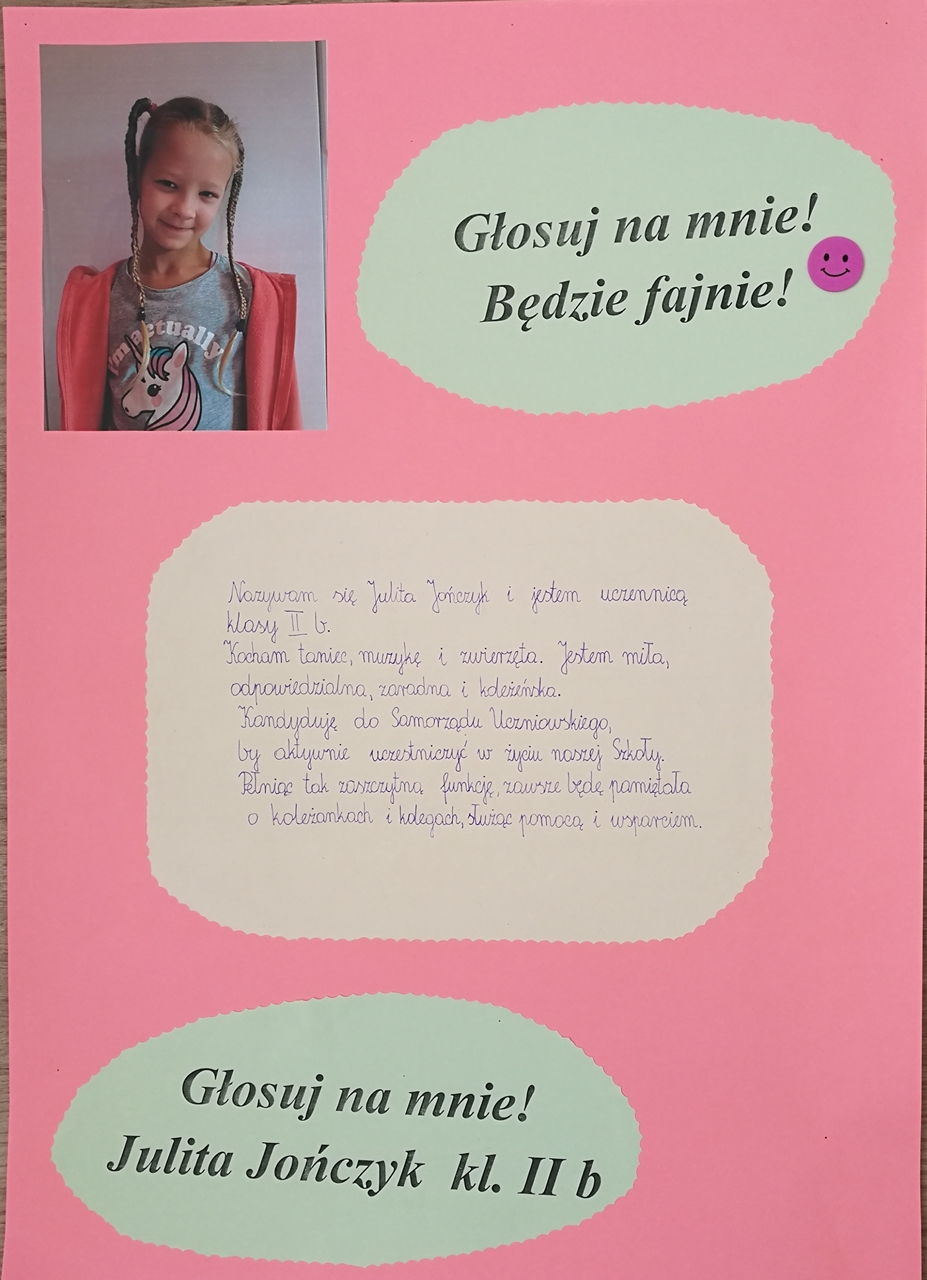 I'm actually
Głosuj na mnie!
Będzie fajnie!
Nazywam się Julita Jończyk i jestem uczennicą
klasy II b.
Kocham taniec, muzykę i zwierzęta. Jestem miła,
odpowiedzialna, zaradna i koleżeńska.
Kandyduję do Samorządu Uczniowskiego,
by aktywnie uczestniczyć w życiu naszej Szkoły.
Pełniąc tak zaszczytną funkcję, zawsze będę pamiętała
o koleżankach i kolegach, służąc pomocą i wsparciem.
Głosuj na mnie!
Julita Jończyk kl. II b